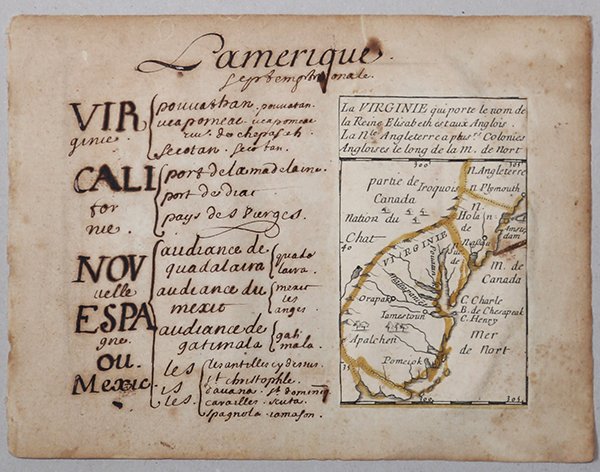 L'amerique.
septemptrionale.
VIR
ginie.
pouuathan. pouuatan.
ueapomeac. ueapomeac
secotan. secotan.
CALI
for
nie.
port de la madelaine
port de diac
pays des Vierges.
NOU
uelle
ESPA
gne.
OU
Mexic.
audiance de
guadalaira
guada
laira.
audeance du
mexit
mexit
les
anges.
audiance de
gatimala
gati
mala.
les
is
les.
les antilles cy dessus.
st christophle.
auana. st domin
cavailles. scuta.
spagnola iamason.
La VIRGINIE qui porte le nom de
la Reine Elisabeth est aux Anglois.
La Nle Angleterre a plusrs Colonies
Angloises le long de la M. de Nort
300
305
partie de
Canada
Iroquois
N. Angleterre
N. Plymouth
Nation du
Chat
N.
Hola
de
Amster
dam
40
VIRGINIE
M. de
Canada
Orapaks
Iamestoun
C. Charle
B. de Chesapeak
C. Henry
Apalchen
Mer
de Nort
Pomeiok
35
300
305